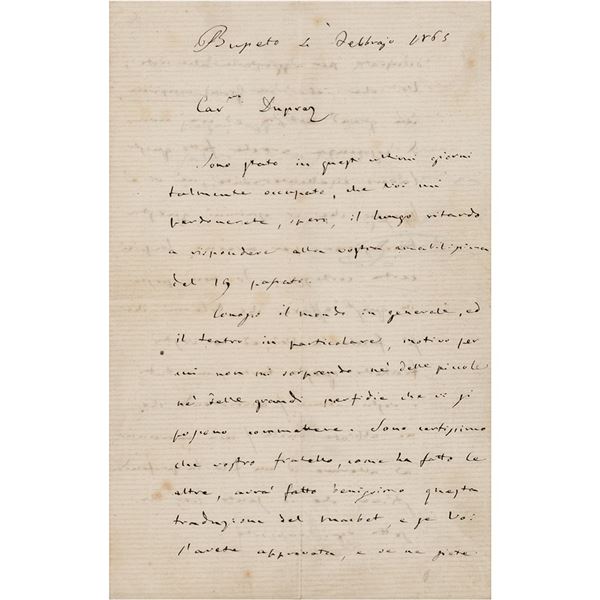 Busseto 4 Febbrajo 1865
Car.mo Duprez
Sono stato in questi ultimi giorni
talmente occupato, che voi mi
perdonerete, spero, il lungo ritardo
a rispondere alla vostra amabilissima
del 19 passato.
Conosco il mondo in generale, ed
il teatro in particolare, motivo per
cui non mi sorprendo nè delle piccole
nè delle grandi perfidie che vi si
possono commettere. Sono certissimo
che vostro fratello, come ha fatto le
altre, avrà fatto benissimo questa
traduzione del Macbet, e se Voi
l'avete approvata, e ve ne siete